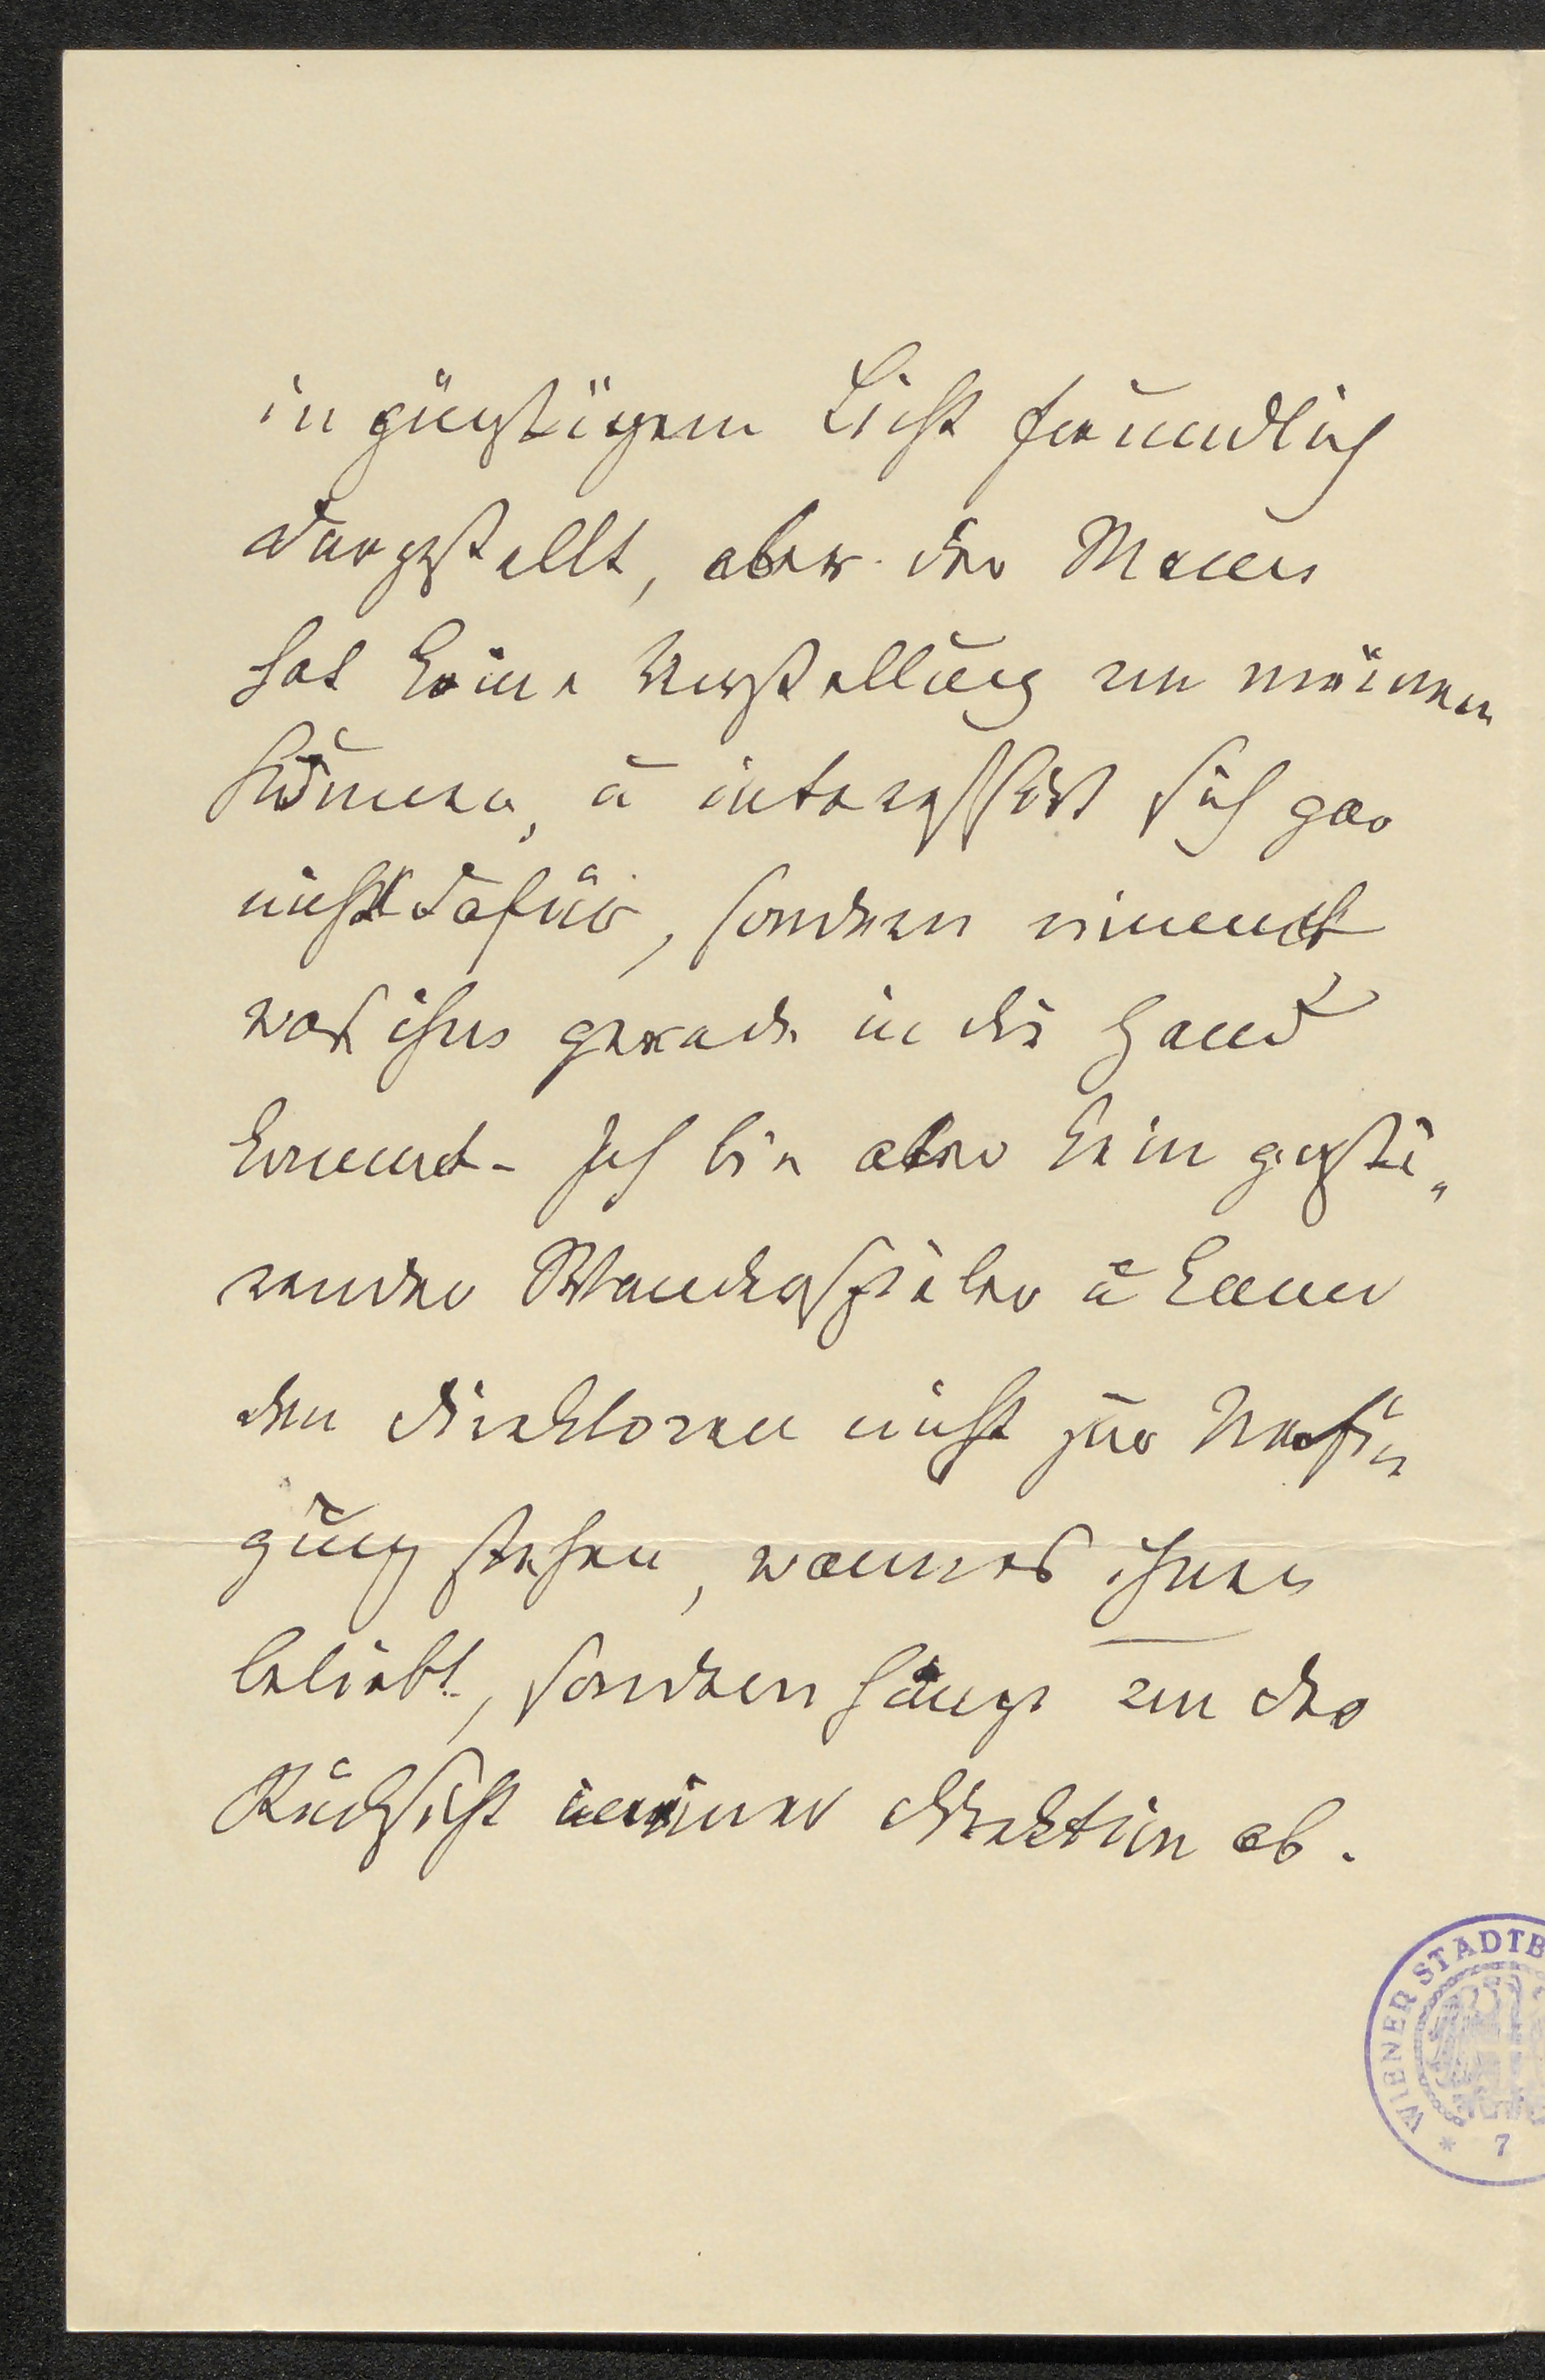 in günstigem Licht freundlich
dargestellt, aber der Mann
hat keine Vorstellung von meinem
Können, u interessirt sich gar
nicht dafür, sondern nimmt
was ihm gerade in die Hand
kommt - Ich bin aber kein gasti„
render Wanderspieler u kann
den Direktoren nicht zur Verfü„
gung stehen, wann es ihnen
beliebt, sondern hänge von der
Rücksicht meiner Direktion ab.
WIENER STADTB
* 7